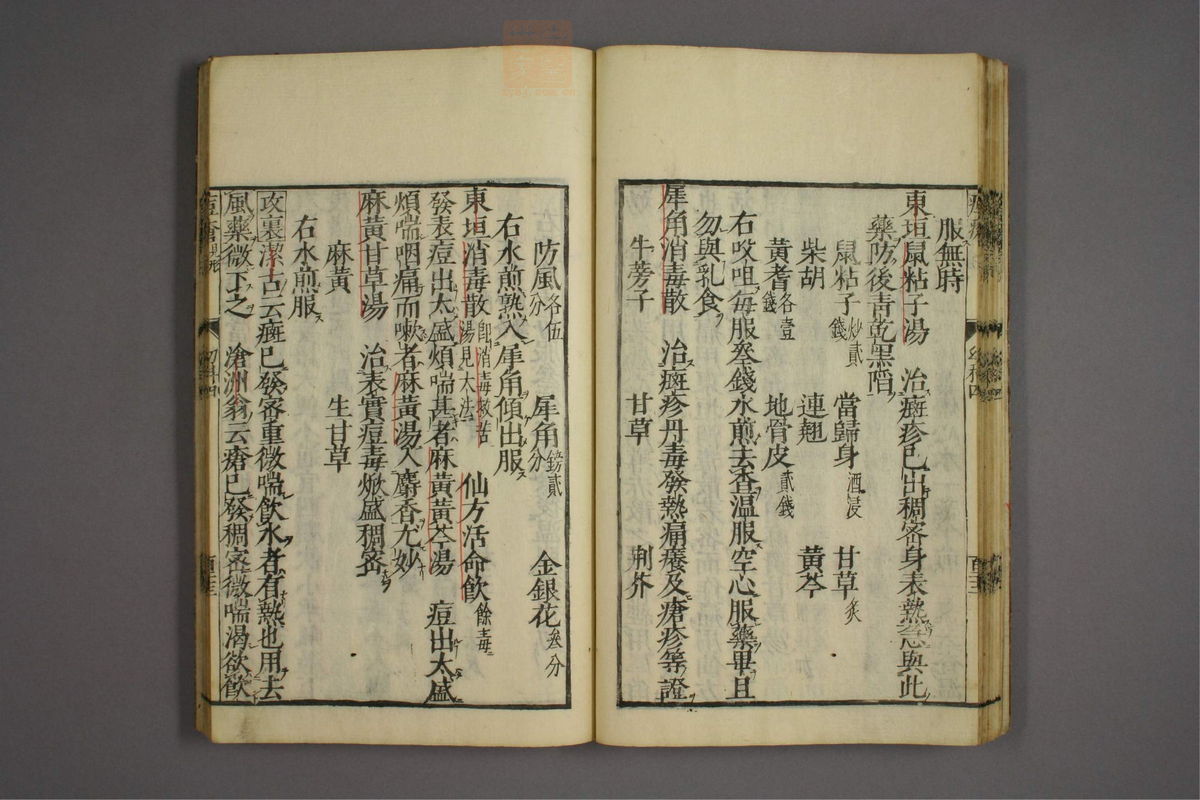 服無時
東垣鼠粘子湯　治癍疹已出稠密身表熱急與此
藥防後靑乾黑陷
鼠粘子炒貳錢　當歸身酒浸　甘草炙
柴胡　連翹　黃芩
黃耆各壹錢　地骨皮貳錢
右㕮咀每服叄錢水煎去査温服空心服藥畢且
勿與乳食
犀角消毒散　治癍疹丹毒發熱痛癢及瘡疹等證
牛蒡子　甘草　荆芥
防風各伍分　犀角鎊貳分　金銀花叄分
右水煎熟入犀角傾出服
東垣消毒散　仙方活命飮餘毒
發表痘出太盛煩喘甚者麻黃黃芩湯　痘出太盛
煩喘咽痛而嗽者麻黃湯入麝香尤妙
麻黃甘草湯　治表實痘毒焮盛稠密
麻黃　生甘草
右水煎服
攻裏潔古云癍已發密重微喘飮水者有熱也用去
風藥微下之　滄洲翁云瘡已發稠密微喘渴欲飮
幼科四
百三三